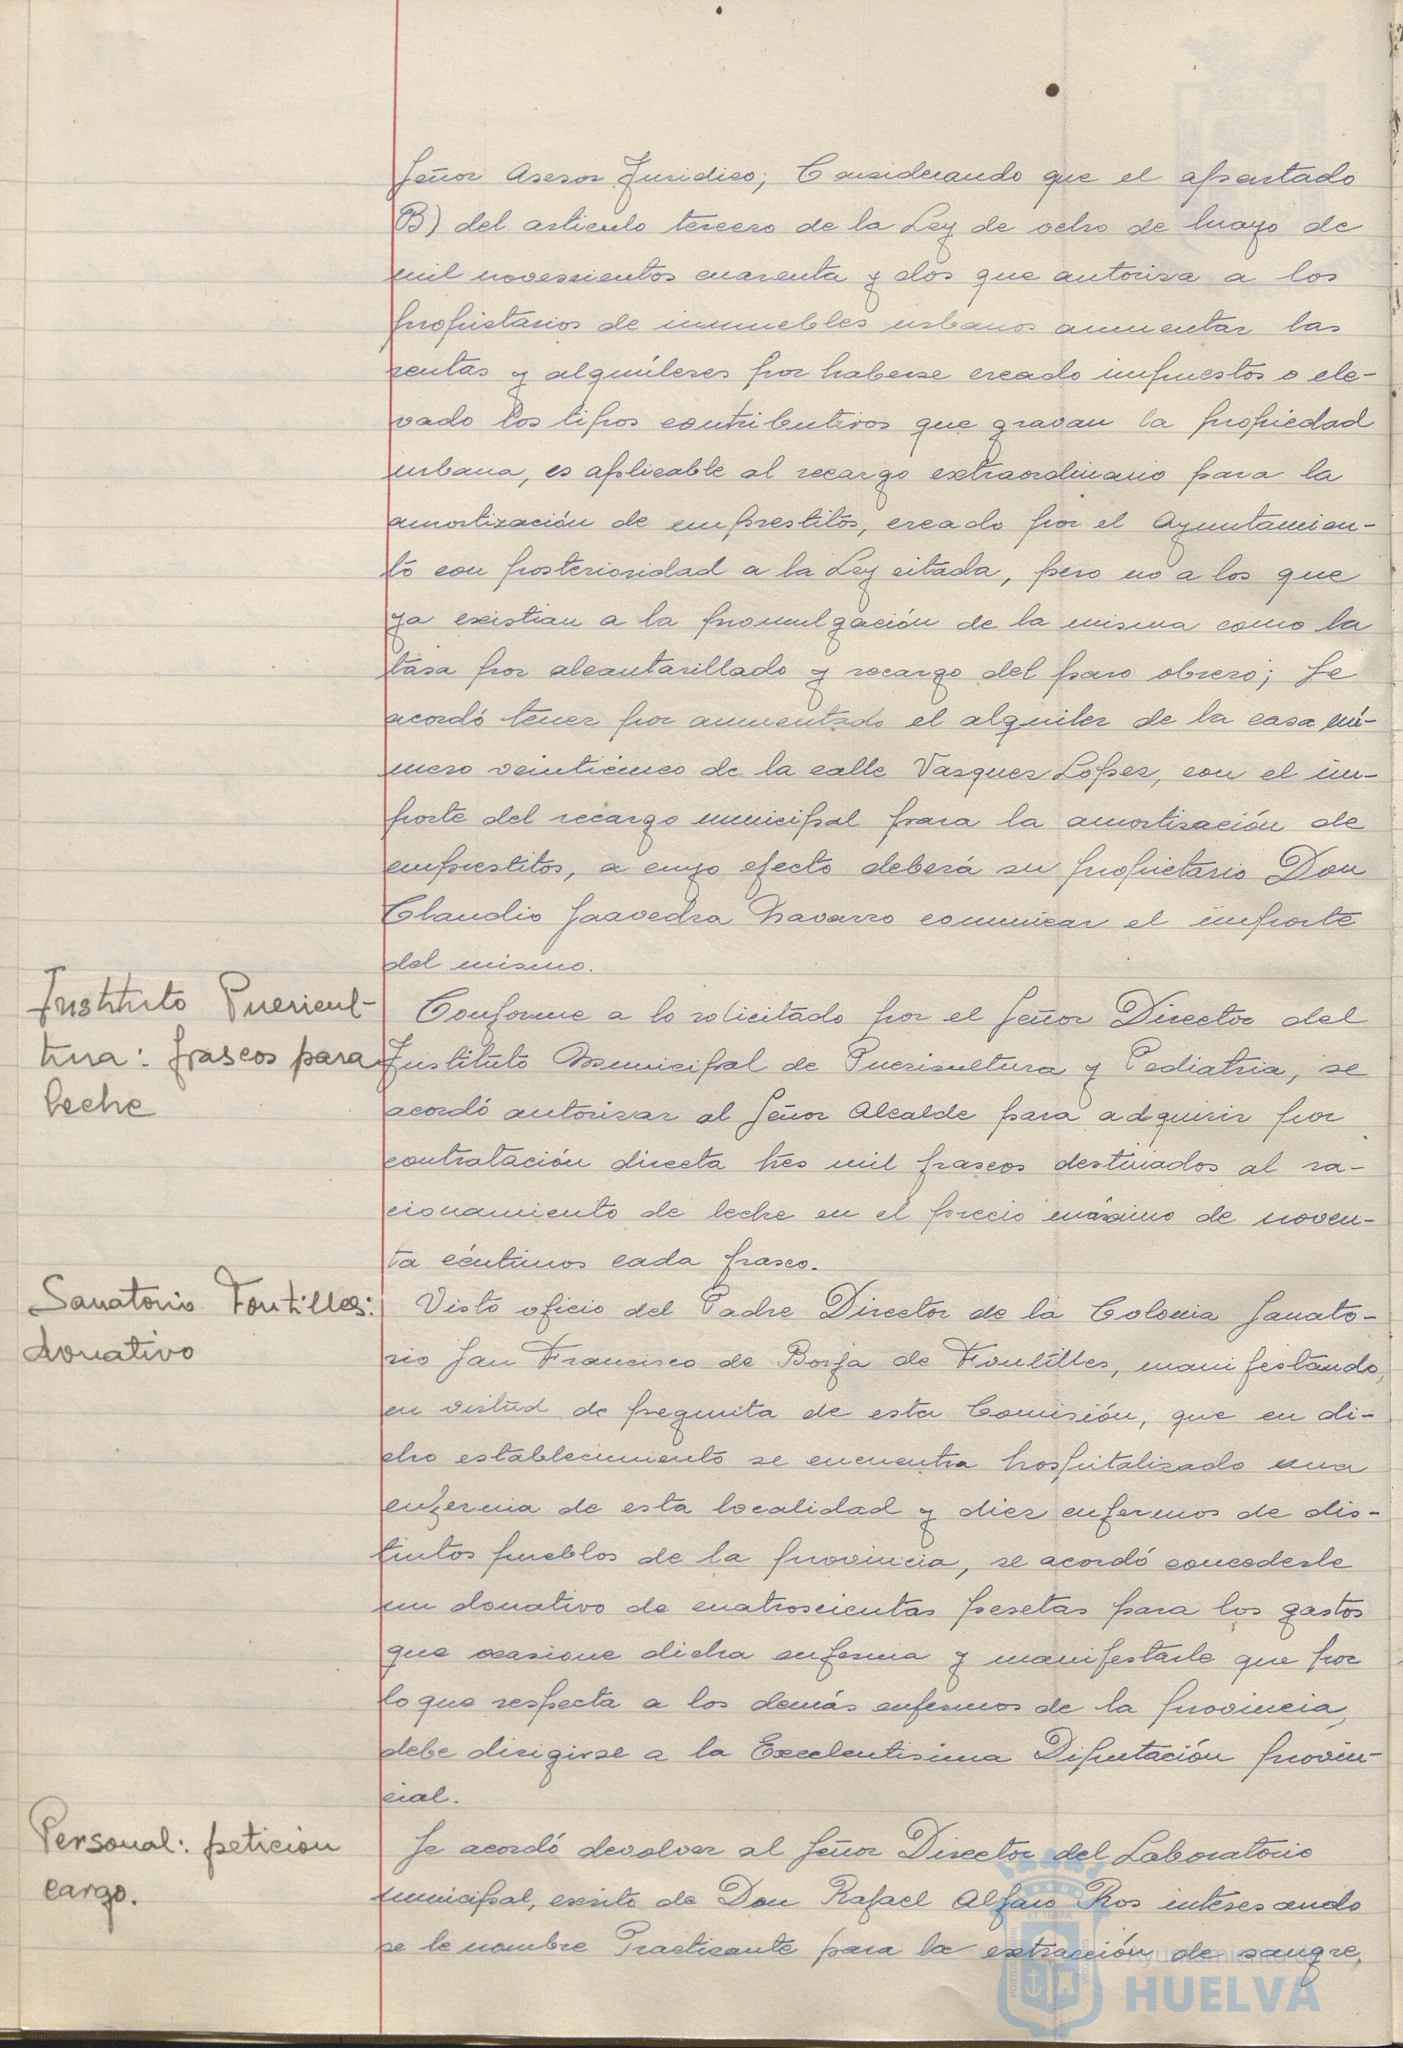 Señor Asesor Juridico; Considerando que el apartado
B) del articulo tercero de la Ley de ocho de Mayo de
mil novescientos cuarenta y dos que autoriza a los
propietarios de inmuebles urbanos aumentar las
rentas y alquileres por haberse creado impuestos o ele-
vado los tipos contributivos que gravan la propiedad
urbana, es aplicable al recargo extraordinario para la
amortización de emprestitos, creado por el Ayuntamien-
to con posterioridad a la Ley citada, pero no a los que
ya existian a la promulgación de la misma como la
tasa por alcantarillado y recargo del paro obrero; Se
acordó tener por aumentado el alquiler de la casa nú-
mero veinticinco de la calle Vasquez Lopez, con el im-
porte del recargo municipal para la amortización de
emprestitos, a cuyo efecto deberá su propietario Don
Claudio Saavedra Navarro comunicar el importe
del mismo.
Instituto Puericul-
tura: frascos para
leche
Conforme a lo solicitado por el Señor Director del
Instituto Municipal de Puericultura y Pediatria, se
acordó autorizar al Señor Alcalde para adquirir por
contratación directa tres mil frascos destinados al ra-
cionamiento de leche en el precio máximo de noven-
ta céntimos cada frasco.
Sanatorio Fontilles:
donativo
Visto oficio del Padre Director de la Colonia Sanato-
rio San Francisco de Borja de Fontilles, manifestando,
en virtud de pregunta de esta Comisión, que en di-
cho establecimiento se encuentra hospitalizado una
enferma de esta localidad y diez enfermos de dis-
tintos pueblos de la provincia, se acordó concederle
un donativo de cuatroscientas pesetas para los gastos
que ocasione dicha enferma y manifestarle que por
lo que respecta a los demás enfermos de la provincia,
debe dirigirse a la Excelentisima Diputación provin-
cial.
Personal: petición
cargo.
Se acordó devolver al Señor Director del Laboratorio
municipal, escrito de Don Rafael Alfaro Ros interesando
se le nombre Practicante para la extracción de sangre,
Ayuntamiento de
HUELVA